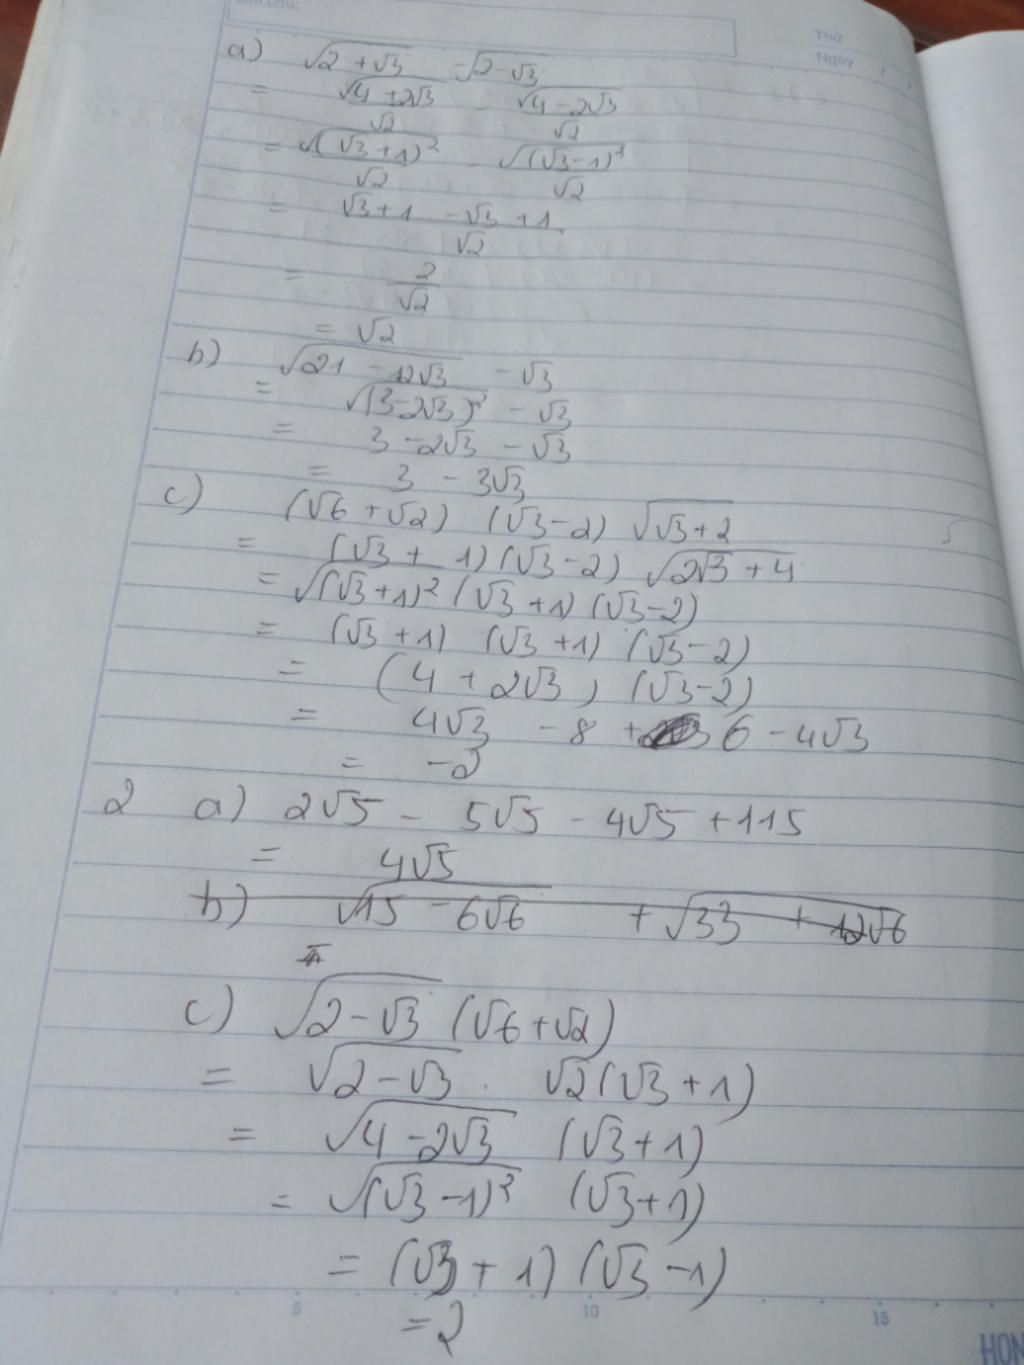 Thứ
Ngày
a) √(2 + √3) - √(2 - √3)
= √(4 + 2√3)/√2 - √(4 - 2√3)/√2
= √((√3 + 1)²)/√2 - √((√3 - 1)²)/√2
= (√3 + 1 - √3 + 1)/√2
= 2/√2
= √2
b) √(21 - 12√3) - √3
= √((3 - 2√3)²) - √3
= 3 - 2√3 - √3
= 3 - 3√3
c) (√6 + √2) (√3 - 2) √(√3 + 2)
= (√3 + 1) (√3 - 2) √(2√3 + 4)
= √((√3 + 1)²) (√3 + 1) (√3 - 2)
= (√3 + 1) (√3 + 1) (√3 - 2)
= (4 + 2√3) (√3 - 2)
= 4√3 - 8 + 6 - 4√3
= -2
2 a) 2√5 - 5√5 - 4√5 + 11√5
= 4√5
b) √(15 - 6√6) + √(33 + 12√6)
c) √(2 - √3) (√6 + √2)
= √(2 - √3) . √2(√3 + 1)
= √(4 - 2√3) (√3 + 1)
= √((√3 - 1)²) (√3 + 1)
= (√3 + 1) (√3 - 1)
= 2
5 10 15
HON